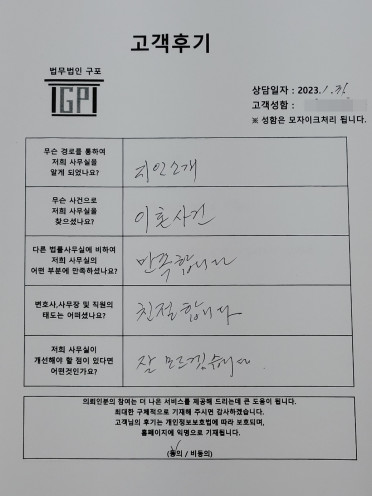 고객후기
법무법인 구포
GP
상담일자 : 2023. 1. 31.
고객성함 :
※ 성함은 모자이크처리 됩니다.
무슨 경로를 통하여
저희 사무실을
알게 되었나요?
지인소개
무슨 사건으로
저희 사무실을
찾으셨나요?
이혼사건
다른 법률사무실에 비하여
저희 사무실의
어떤 부분에 만족하셨나요?
만족합니다
변호사,사무장 및 직원의
태도는 어떠셨나요?
친절합니다
저희 사무실이
개선해야 할 점이 있다면
어떤것인가요?
잘 모르겠습니다
의뢰인분의 참여는 더 나은 서비스를 제공해 드리는데 큰 도움이 됩니다.
최대한 구체적으로 기재해 주시면 감사하겠습니다.
고객님의 후기는 개인정보보호법에 따라 보호되며,
홈페이지에 익명으로 기재됩니다.
(동의 / 비동의)